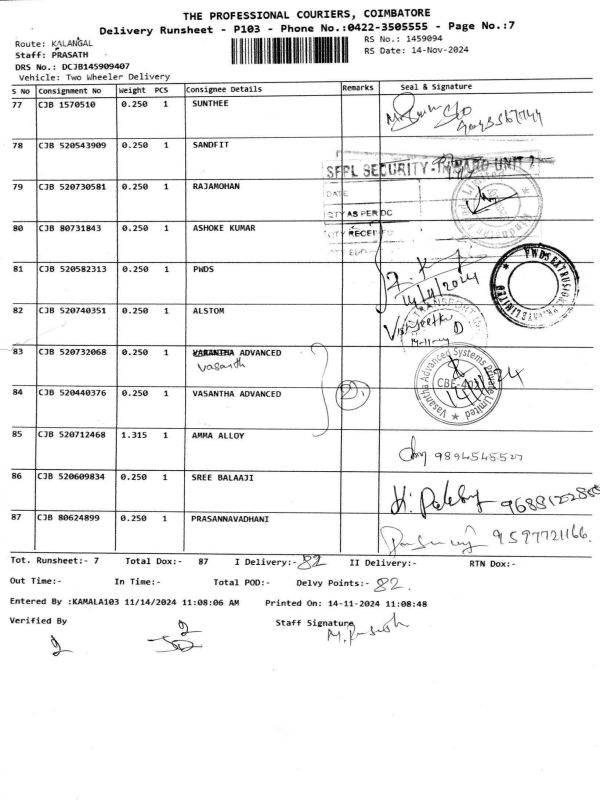 THE PROFESSIONAL COURIERS, COIMBATORE
Delivery Runsheet - P103 - Phone No.:0422-3505555 - Page No.:7
Route: KALANGAL
RS No.: 1459094
Staff: PRASATH
RS Date: 14-Nov-2024
DRS No.: DCJB145909407
Vehicle: Two Wheeler Delivery
S No Consignment No Weight PCS Consignee Details Remarks Seal & Signature
77 CJB 1570510 0.250 1 SUNTHEE
78 CJB 520543909 0.250 1 SANDFIT
SFPL SECURITY - UNIT 2
79 CJB 520730581 0.250 1 RAJAMOHAN
DATE
QTY AS PER DC
80 CJB 80731843 0.250 1 ASHOKE KUMAR
81 CJB 520582313 0.250 1 PWDS
14/11/2024
PWDS EXTRUSIONS PRIVATE LIMITED
82 CJB 520740351 0.250 1 ALSTOM
TRANSPORT
83 CJB 520732068 0.250 1 VARANTHA ADVANCED
Vasanth
84 CJB 520440376 0.250 1 VASANTHA ADVANCED
2
Vasantha Advanced Systems Private Limited
85 CJB 520712468 1.315 1 AMMA ALLOY
86 CJB 520609834 0.250 1 SREE BALAAJI
87 CJB 80624899 0.250 1 PRASANNAVADHANI
9597721166.
Tot. Runsheet:- 7 Total Dox:- 87 I Delivery:- 82 II Delivery:- RTN Dox:-
Out Time:- In Time:- Total POD:- Delvy Points:- 82.
Entered By :KAMALA103 11/14/2024 11:08:06 AM Printed On: 14-11-2024 11:08:48
Verified By
Staff Signature
M. Prasath